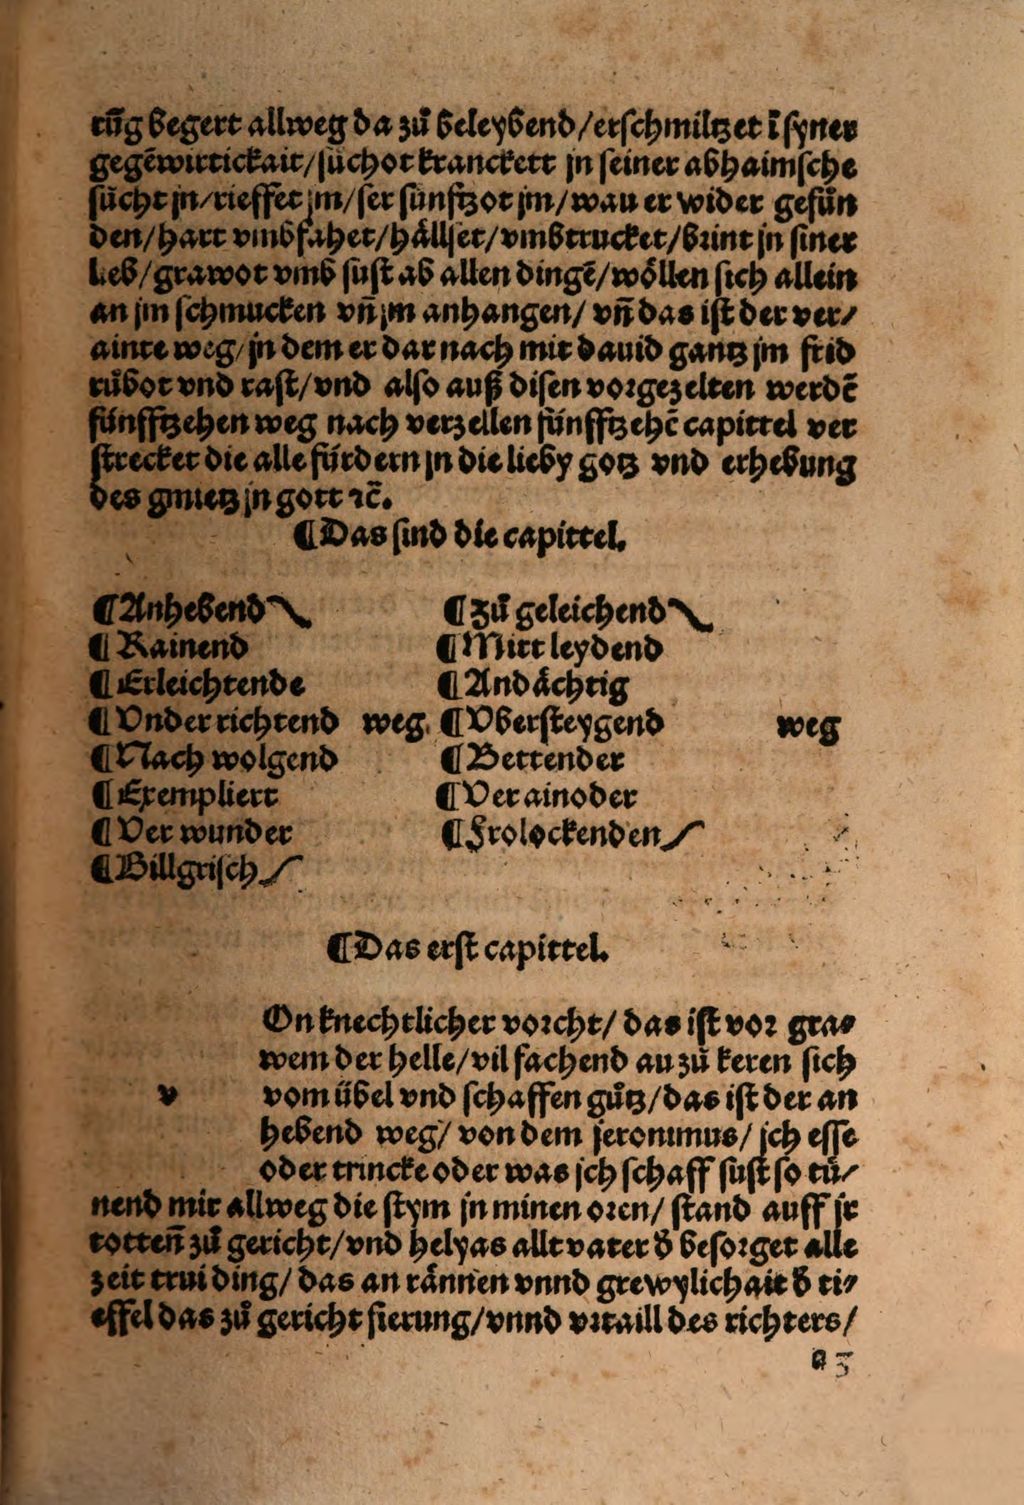 rũg begert allweg da zů beleybend/erschmiltzet ī syner
gegēwirtickait/sůchot kranckett jn seiner abhaimsche
sůcht jn/rieffet jm/ser sünfftzot jm/wau er wider gefůn
den/hart vmbfahet/hållset/vmbtrucket/brint jn siner
Lieb/grawot vmb sust ab allen dingē/wöllen sich allein
an jm schmucken vn̄ jm anhangen/ vn̄ das ist der ver/
ainte weg/jn dem er dar nach mit dauid gantz jm frid
růbot vnd rast/vnd also auß disen vorgezelten werdē
fünfftzehen weg nach verzellen fünfftzehē capittel ver
strecket die alle fürdern jn die lieby gotz vnd erhebung
des gmietz jn gott ⁊c̄.
¶Das sind die capittel.
¶Anhebend
¶Rainend
¶Erleichtende
¶Vnder richtend weg.
¶Nach wolgend
¶Exempliert
¶Ver wunder
¶Billgrisch
¶Zů geleichend
¶Mitt leydend
¶Andåchtig
¶Vbersteygend weg
¶Bettender
¶Ver ainoder
¶Frolockenden
¶Das erst capittel.
On knechtlicher vorcht/ das ist vor gra/
wem der helle/vil fachend au zů keren sich
v vom übel vnd schaffen gůtz/das ist der an
hebend weg/ von dem jeronimus/ jch esse
oder trincke oder was jch schaff sust so tů/
nend mir allweg die stym jn minen oren/ stand auff jr
totten̄ zů gericht/vnd helyas alltvater d̕ besorget alle
zeit trui ding/ das an rånnen vnnd grewylichait d̕ ti/
effel das zů gericht fierung/vnnd vrtaill des richters/
a 3